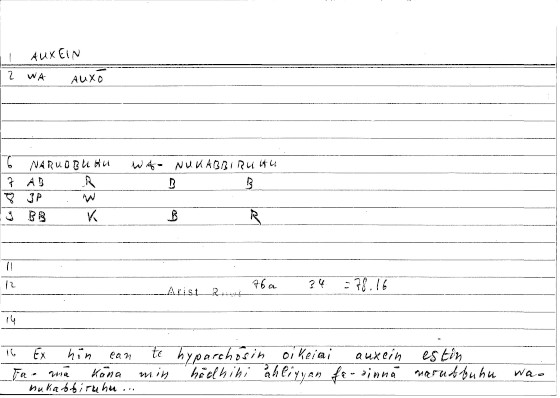 1 AUXEIN
2 WA AUXŌ
6 NARUDBUHU WA- NUKABBIRUHU
7 AB R B B
8 JP W
9 BB K B R
11
12 Arist 76a 34 = 78.16
14
16 Ex hīn ean te hyparchōsin oikeiai auxein estin
Fa- mā kāna min hādhihi ahliyyan fa-innā narubbuhu wa-
nukabbiruhu...